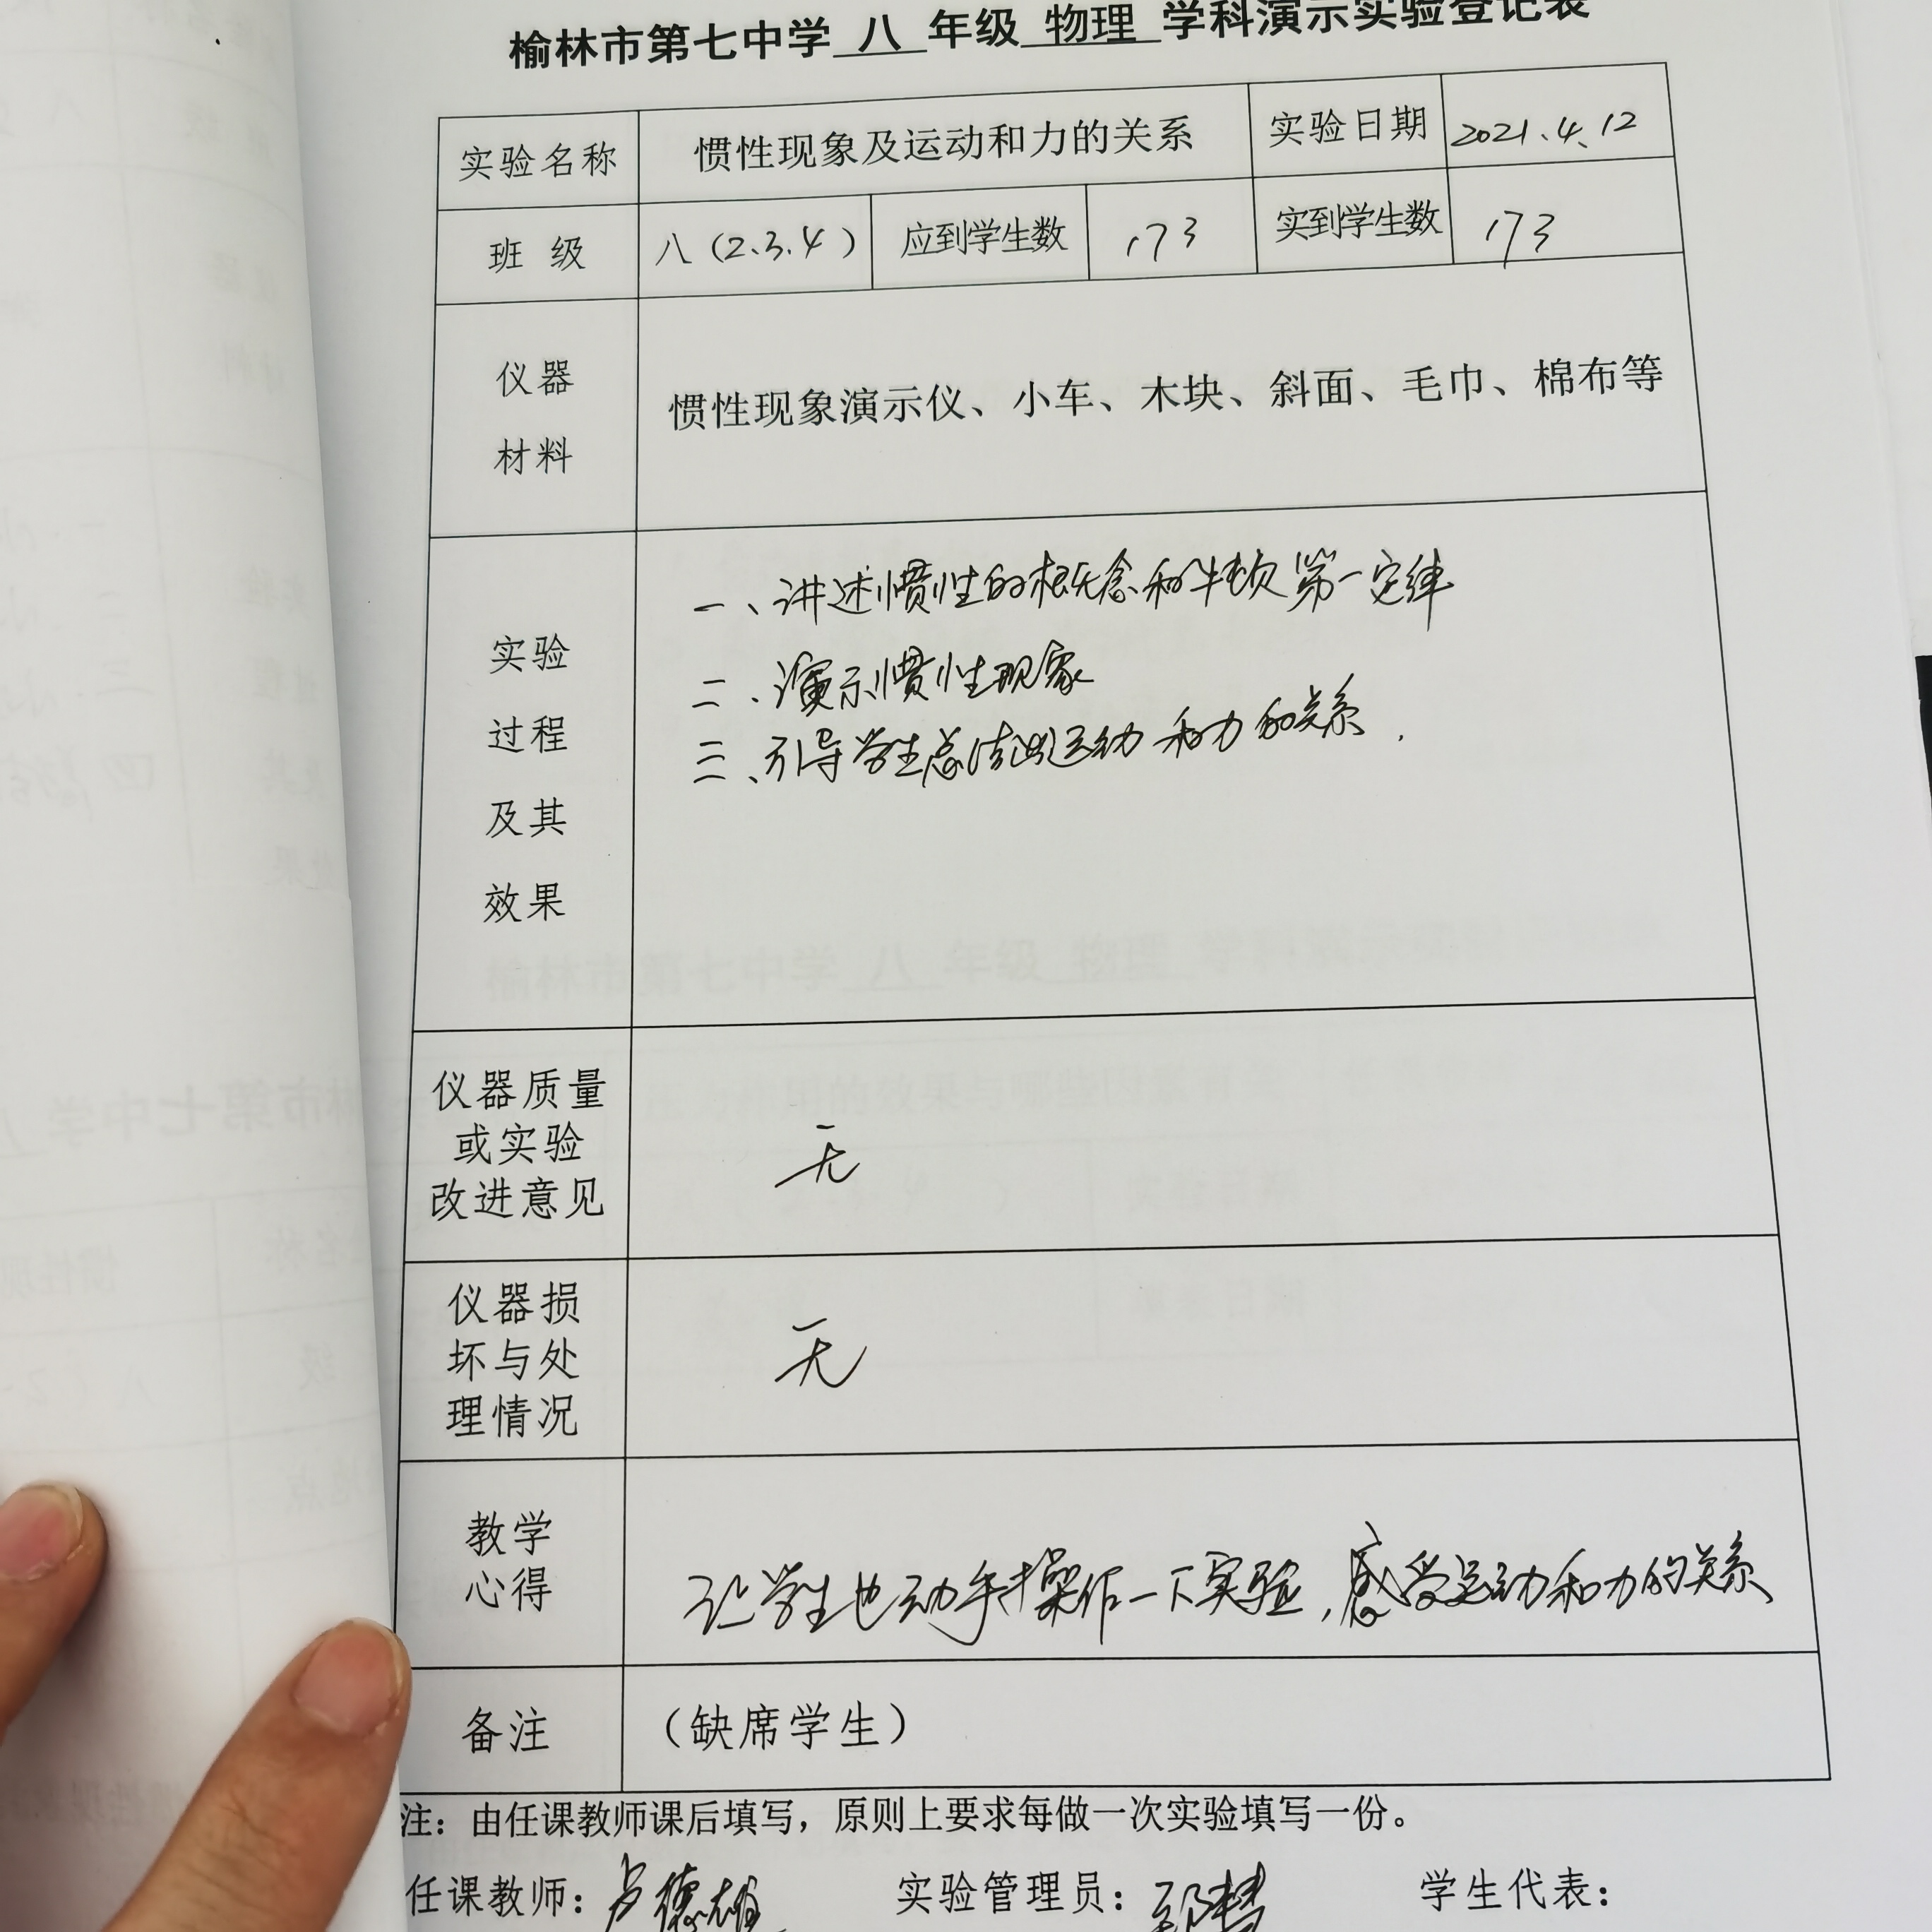 榆林市第七中学 八 年级 物理 学科演示实验登记表
实验名称 惯性现象及运动和力的关系 实验日期 2021.4.12
班 级 八（2.3.4） 应到学生数 173 实到学生数 173
仪器
材料
惯性现象演示仪、小车、木块、斜面、毛巾、棉布等
实验
过程
及其
效果
一、讲述惯性的概念和牛顿第一定律
二、演示惯性现象
三、引导学生总结出运动和力的关系.
仪器质量
或实验
改进意见
无
仪器损
坏与处
理情况
无
教学
心得
让学生也动手操作一下实验，感受运动和力的关系
备注 （缺席学生）
注：由任课教师课后填写，原则上要求每做一次实验填写一份。
任课教师：卢德雄 实验管理员： 学生代表：